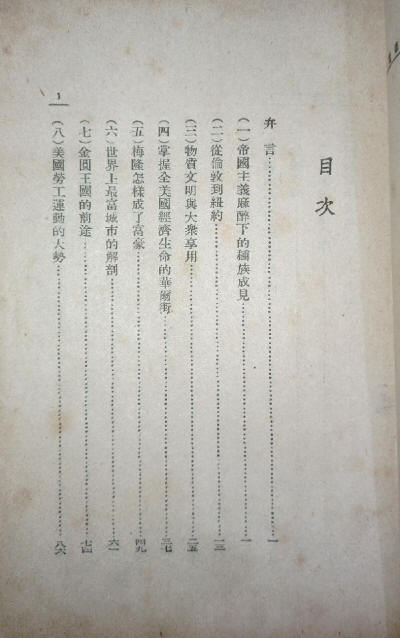 目次
弁言……一
(一)帝國主義麻醉下的種族成見……一
(二)從倫敦到紐約……一三
(三)物質文明與大衆享用……二五
(四)掌握全美國經濟生命的華爾街……三七
(五)梅隆怎樣成了富豪……四九
(六)世界上最富城市的解剖……六一
(七)金圓王國的前途……七四
(八)美國勞工運動的大勢……八六
1